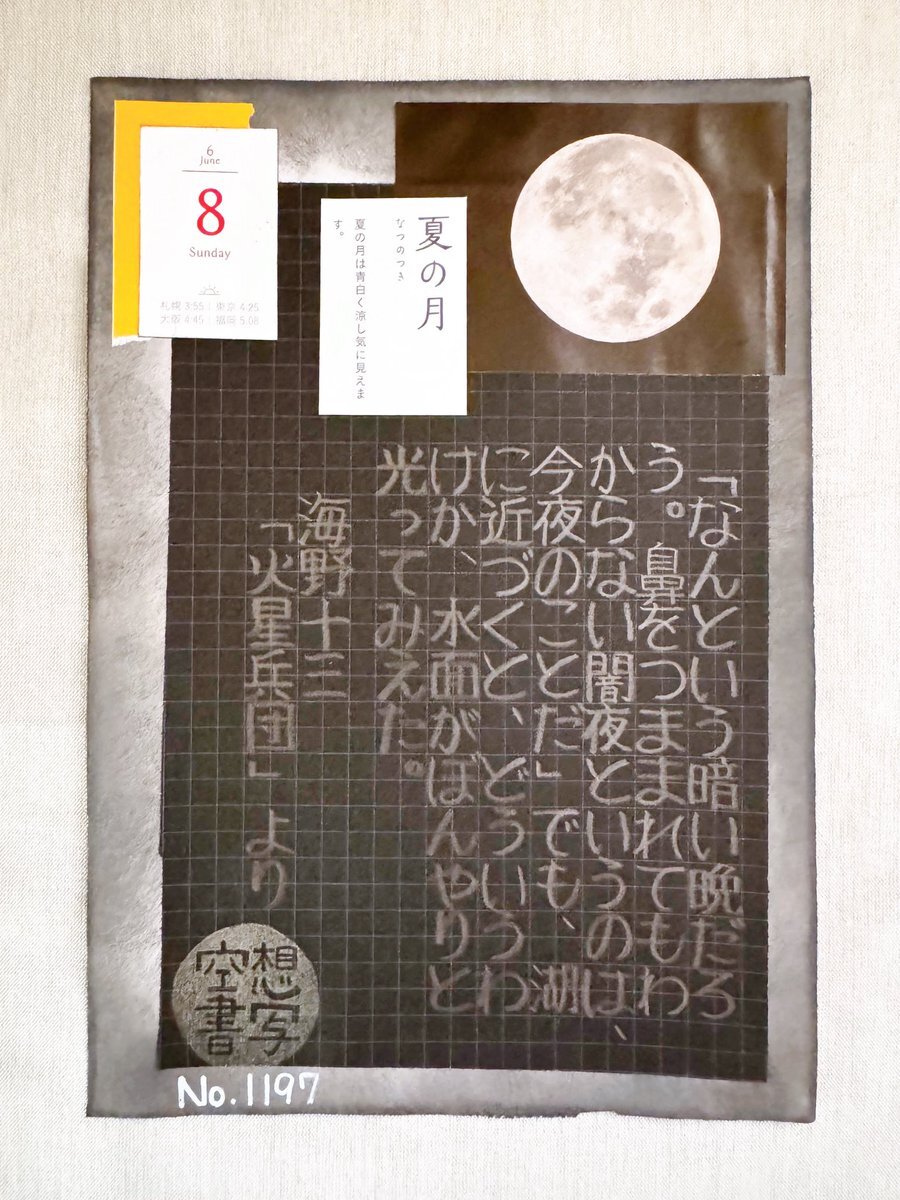 6
June
8
Sunday
札幌 3:55 | 東京 4:25
大阪 4:45 | 福岡 5:08
夏の月
なつのつき
夏の月は青白く涼し気に見えま
す。
「なんという暗い晩だろ
う。鼻をつままれてもわ
からない闇夜というのは、
今夜のことだ」でも、湖
に近づくと、どういうわ
けか、水面がぼんやりと
光ってみえた。
海野十三
「火星兵団」より
想写
空書
No.1197